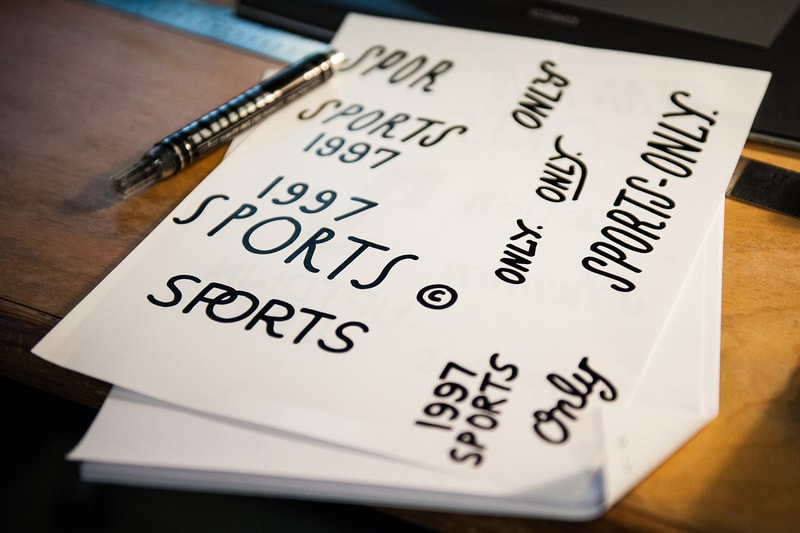 SPOR
SPORTS
1997
1997
SPORTS
©
SPORTS
ONLY.
ONLY.
ONLY.
SPORTS-ONLY.
1997
SPORTS
Only